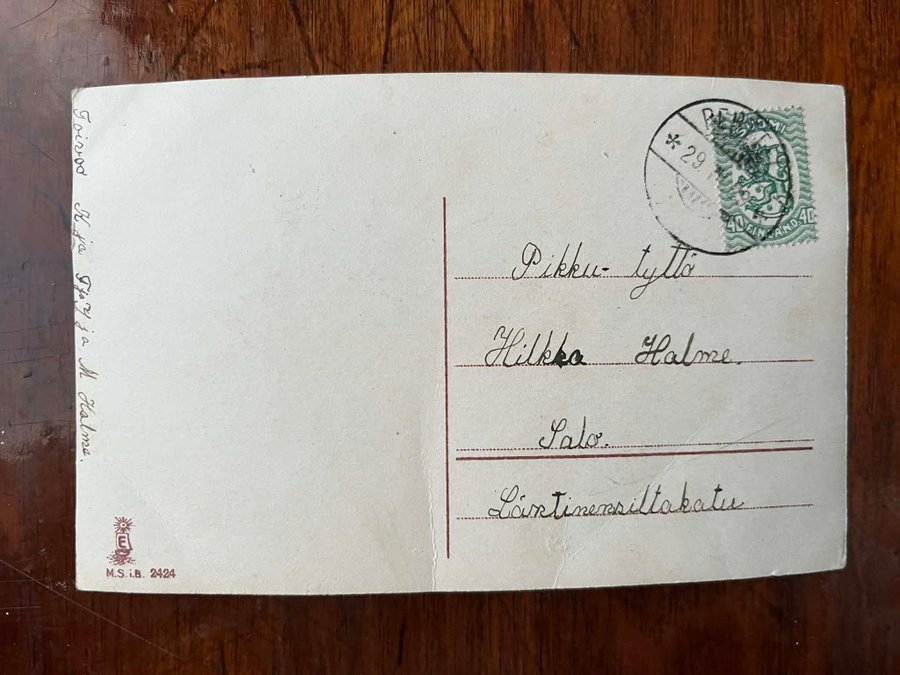 Toivoo K ja T ja Y ja M Halme.
SUOMI
40 40
FINLAND
* 29.
Pikku-tyttö
Hilkka Halme.
Salo.
Läntinensiltakatu
E
M.S.i.B. 2424